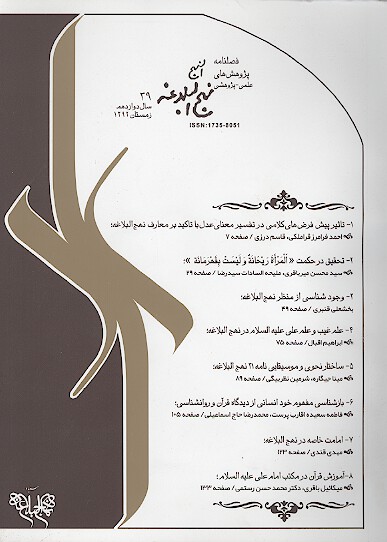 فصلنامه
پژوهش‌های
علمی-پژوهشی
نهج البلاغه
۳۹
سال دوازدهم
زمستان ۱۳۹۲
ISSN:1735-8051
۱- تاثیر پیش فرض‌های کلامی در تفسیر معنای عدل با تاکید بر معارف نهج البلاغه؛
احد فرامرز قراملکی، قاسم درزی / صفحه ۷
۲- تحقیق در حکمت «اَلْمَرْأَةُ رَیْحَانَةٌ وَ لَیْسَتْ بِقَهْرَمَانَة»؛
سید محسن میرباقری، ملیحه السادات سیدرضا / صفحه ۲۹
۳- وجود شناسی از منظر نهج البلاغه؛
بخشعلی قنبری / صفحه ۴۹
۴- علم غیب و علم علی علیه السلام در نهج البلاغه؛
ابراهیم اقبال / صفحه ۷۵
۵- ساختار نحوی و موسیقایی نامه ۳۱ نهج البلاغه؛
مینا جیگاره، شرمین نظربیگی / صفحه ۸۹
۶- بازشناسی مفهوم خود انسانی از دیدگاه قرآن و روانشناسی؛
فاطمه سعیده اقارب پرست، محمدرضا حاج اسماعیلی / صفحه ۱۰۵
۷- امامت خاصه در نهج البلاغه؛
مهدی قندی / صفحه ۱۲۳
۸- آموزش قرآن در مکتب امام علی علیه السلام؛
میکائیل باقری، دکتر محمد حسن رستمی / صفحه ۱۳۳